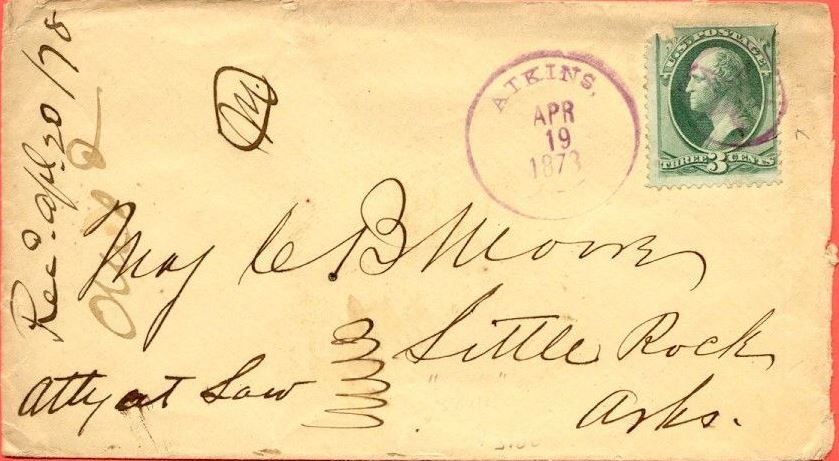 Rec'd. Apl. 20/78
M.
ATKINS,
APR
19
1873
U.S. POSTAGE
THREE 3 CENTS
Maj C. B. Moore
Little Rock
" "
Arks.
Atty at Law